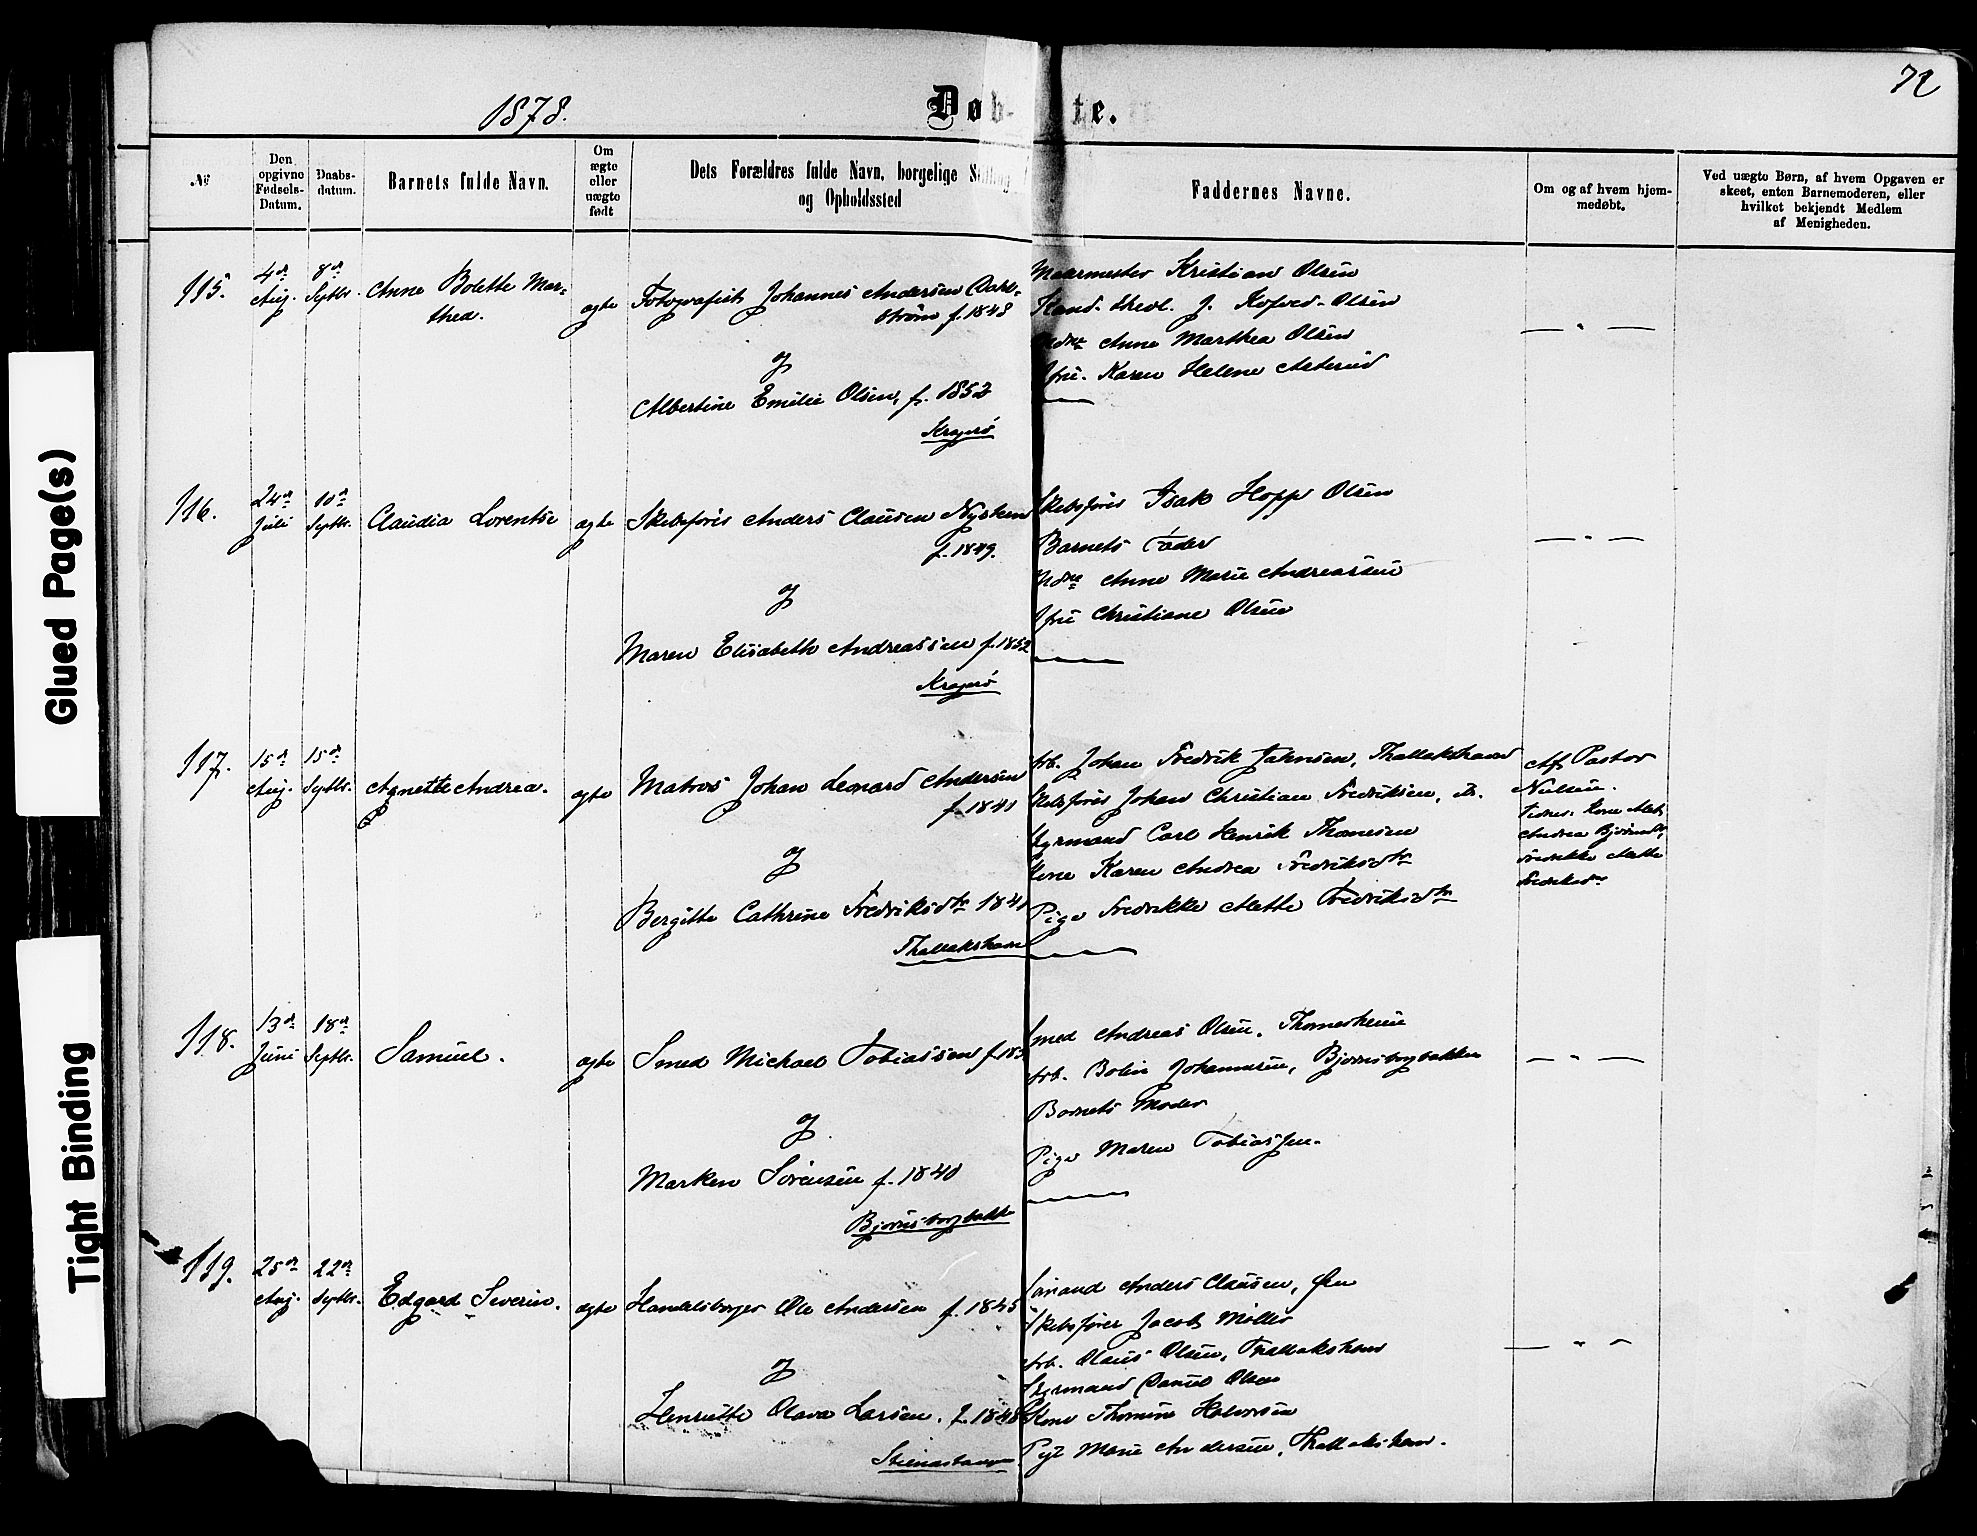 72
1878.
Døb te.
No
Den opgivne Fødsels-Datum.
Daabs-datum.
Barnets fulde Navn.
Om ægte eller uægte født
Dets Forældres fulde Navn, borgelige
og Opholdssted
Faddernes Navne.
Om og af hvem hjem-medøbt.
Ved uægte Børn, af hvem Opgaven er
skeet, enten Barnemoderen, eller
hvilket bekjendt Medlem
af Menigheden.
115.
4de Aug.
8de Septbr.
Anne Bolette Mar-
thea.
ægte
Fotografist Johannes Andersen Dahl-
strøm f. 1848
og
Albertine Emilie Olsen, f. 1852
Kragerø
Murmester Kristian Olsen
Kand. theol. J. Kofoed-Olsen
Mdme Anne Marthea Olsen
Jfru. Karen Helene
— " —
116.
24de Juli
10de Septbr.
Claudia Lorentse
ægte
Skibsfører Anders Clausen
f. 1849.
og
Maren Elisabeth Andreassen f. 1852
Kragerø
Skibsfører Isak Hopp Olsen
Barnets Fader
Mdme Anne Marie Andreassen
Jfru Christiane Olsen
— " —
117.
15de Aug.
15de Septbr.
Agnette Andrea.
ægte
Matros Johan Leonard Andersen
f. 1841
og
Bergitte Cathrine Fredriksdtr
Thallakshavn
Arb. Johan Fredrik Jahnsen, Thallakshavn
Skibsfører Johan Christian Fredriksen, do.
Styrmand Carl Henrik Thomesen
Kone Karen Andrea Fredriksdtr
Pige Fredrikke Mette Fredriksdtr
Af Pastor
Nielsen.
Kone
Andrea
Fredrikke Mette
Fredriksdtr
118.
13de Juni
18de Septbr.
Samuel.
ægte
Smed Michael Tobiassen f. 183
og
Marken Sørensen f. 1840
Bjørnsborgbakke
Smed Andreas Olsen,
Arb. Bolin Johannesen, Bjørnsborgbakken
Barnets Moder
Pige Maren Tobiassen.
— " —
119.
25de Aug.
22de Septbr.
Edgard Severin.
ægte
Handelsborger Ole Andersen f. 1845
og
Henriette Olava Larsen. f. 1848
Anders Clausen, Øen
Skibsfører Jacob Møller
Arb. Olaus Olsen, Thallakshavn
Styrmand Daniel Olsen
Kone Thomine Halvorsen
Pige Marie Andersen, Thallakshavn.
— " —
Glued Page(s)
Tight Binding